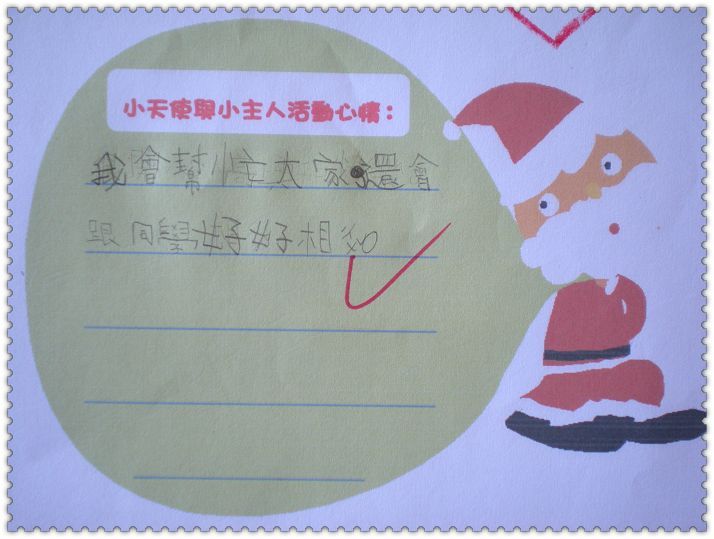 小天使與小主人活動心情：
我會幫忙大家,還會
跟同學好好相處